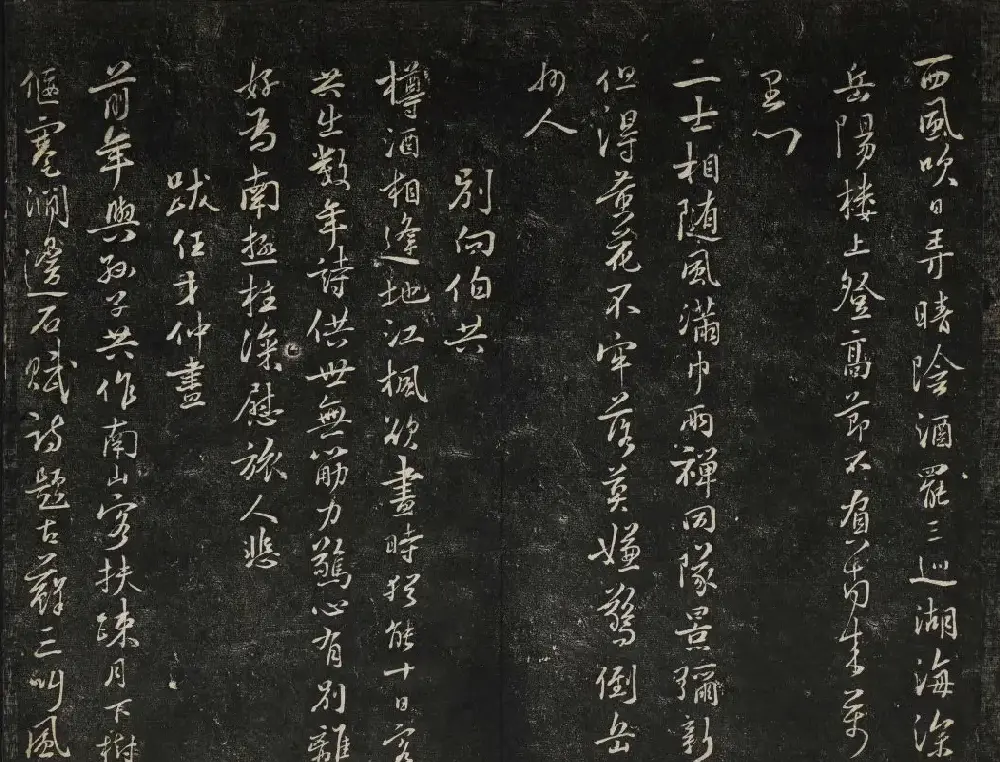 西風吹日弄晴陰酒罷三巡湖海深
岳陽楼上登高節不負南來萬
里心
二士相随風滿巾兩禪同隊景彌新
但得黃花不牢落莫嫌驚倒岳
州人
別向伯共
樽酒相逢地江楓欲盡時猶能十日客
共出數年詩供世無筋力驚心有別離
好為南極柱深慰旅人悲
跋任才仲畫
前年與孫子共作南山客扶疎月下樹
偃蹇澗邊石賦詩題古蘚三叫風